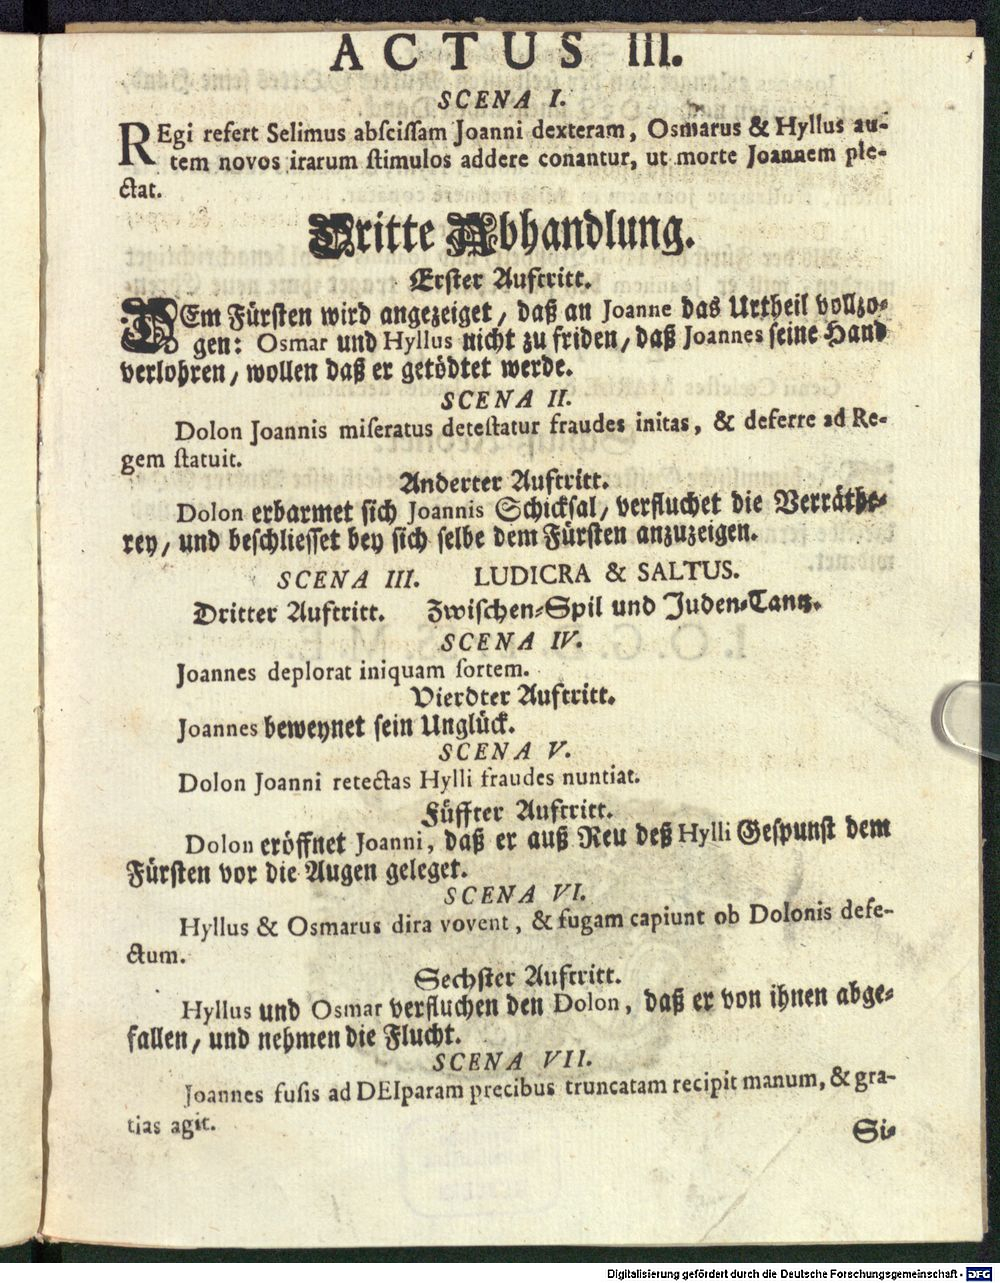 ACTUS III.
SCENA I.
REgi refert Selimus abſciſſam Joanni dexteram, Osmarus & Hyllus au-
tem novos irarum ſtimulos addere conantur, ut morte Joannem ple-
ctat.
Dritte Abhandlung.
Erſter Auftritt.
DEm Fürſten wird angezeiget / daß an Joanne das Urtheil vollzo-
gen: Osmar und Hyllus nicht zu friden / daß Joannes ſeine Hand
verlohren / wollen daß er getödtet werde.
SCENA II.
Dolon Joannis miſeratus deteſtatur fraudes initas, & deferre ad Re-
gem ſtatuit.
Anderter Auftritt.
Dolon erbarmet ſich Joannis Schickſal / verfluchet die Verräthe-
rey / und beſchlieſſet bey ſich ſelbe dem Fürſten anzuzeigen.
SCENA III. LUDICRA & SALTUS.
Dritter Auftritt. Zwiſchen-Spil und Juden-Tantz.
SCENA IV.
Joannes deplorat iniquam ſortem.
Vierdter Auftritt.
Joannes beweynet ſein Unglück.
SCENA V.
Dolon Joanni retectas Hylli fraudes nuntiat.
Füffter Auftritt.
Dolon eröffnet Joanni, daß er auß Reu deß Hylli Geſpunſt dem
Fürſten vor die Augen geleget.
SCENA VI.
Hyllus & Osmarus dira vovent, & fugam capiunt ob Dolonis defe-
ctum.
Sechſter Auftritt.
Hyllus und Osmar verfluchen den Dolon, daß er von ihnen abge-
fallen / und nehmen die Flucht.
SCENA VII.
Joannes fuſis ad DEIparam precibus truncatam recipit manum, & gra-
tias agit.
Si-
Digitalisierung gefördert durch die Deutsche Forschungsgemeinschaft - DFG